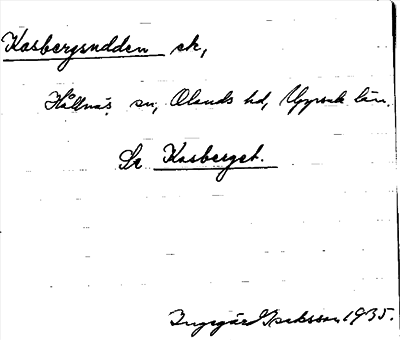 Kasbergsudden sk,
Hållnäs sn, Olands hd, Uppsala län.
Se Kasberget.
Ingegärd Isaksson 1935.